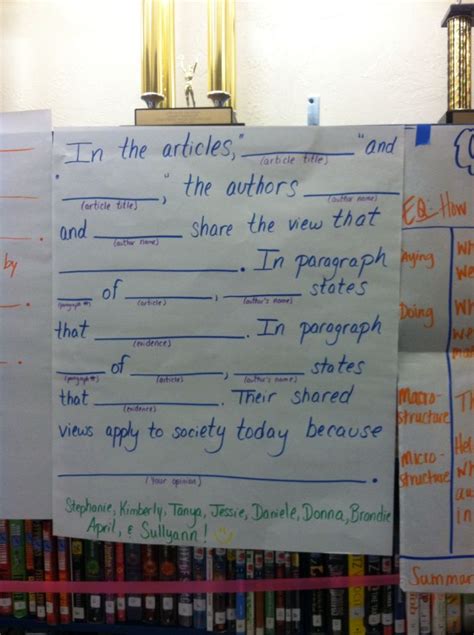 In the articles, "__________" and
(article title)
"__________," the authors __________
(article title) (author name)
and __________ share the view that
(author name)
__________. In paragraph
____ of __________, __________ states
(paragraph #) (article) (author's name)
that __________. In paragraph
(evidence)
____ of __________, __________ states
(paragraph #) (article) (author's name)
that __________. Their shared
(evidence)
views apply to society today because
__________.
(Your opinion)
Stephanie, Kimberly, Tanya, Jessie, Daniele, Donna, Brandie
April, & Sullyann!
by
EQ-How
Saying
Doing
Macro-
structure
Micro-
structure
Summar